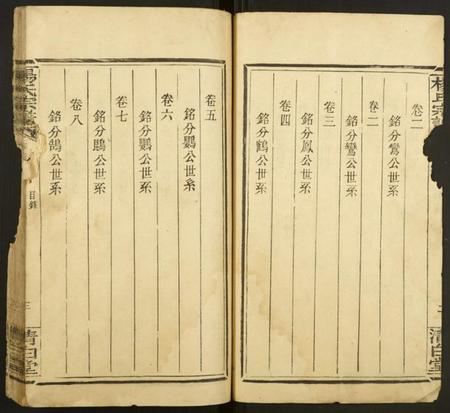 楊氏宗譜
二
清白堂
卷二
銘分鶯公世系
卷二
銘分鸞公世系
卷三
銘分鳳公世系
卷四
銘分鶴公世系
卷五
銘分鸚公世系
卷六
銘分鸚公世系
卷七
銘分鵰公世系
卷八
銘分鵠公世系
楊氏宗譜
目錄
三
清白堂